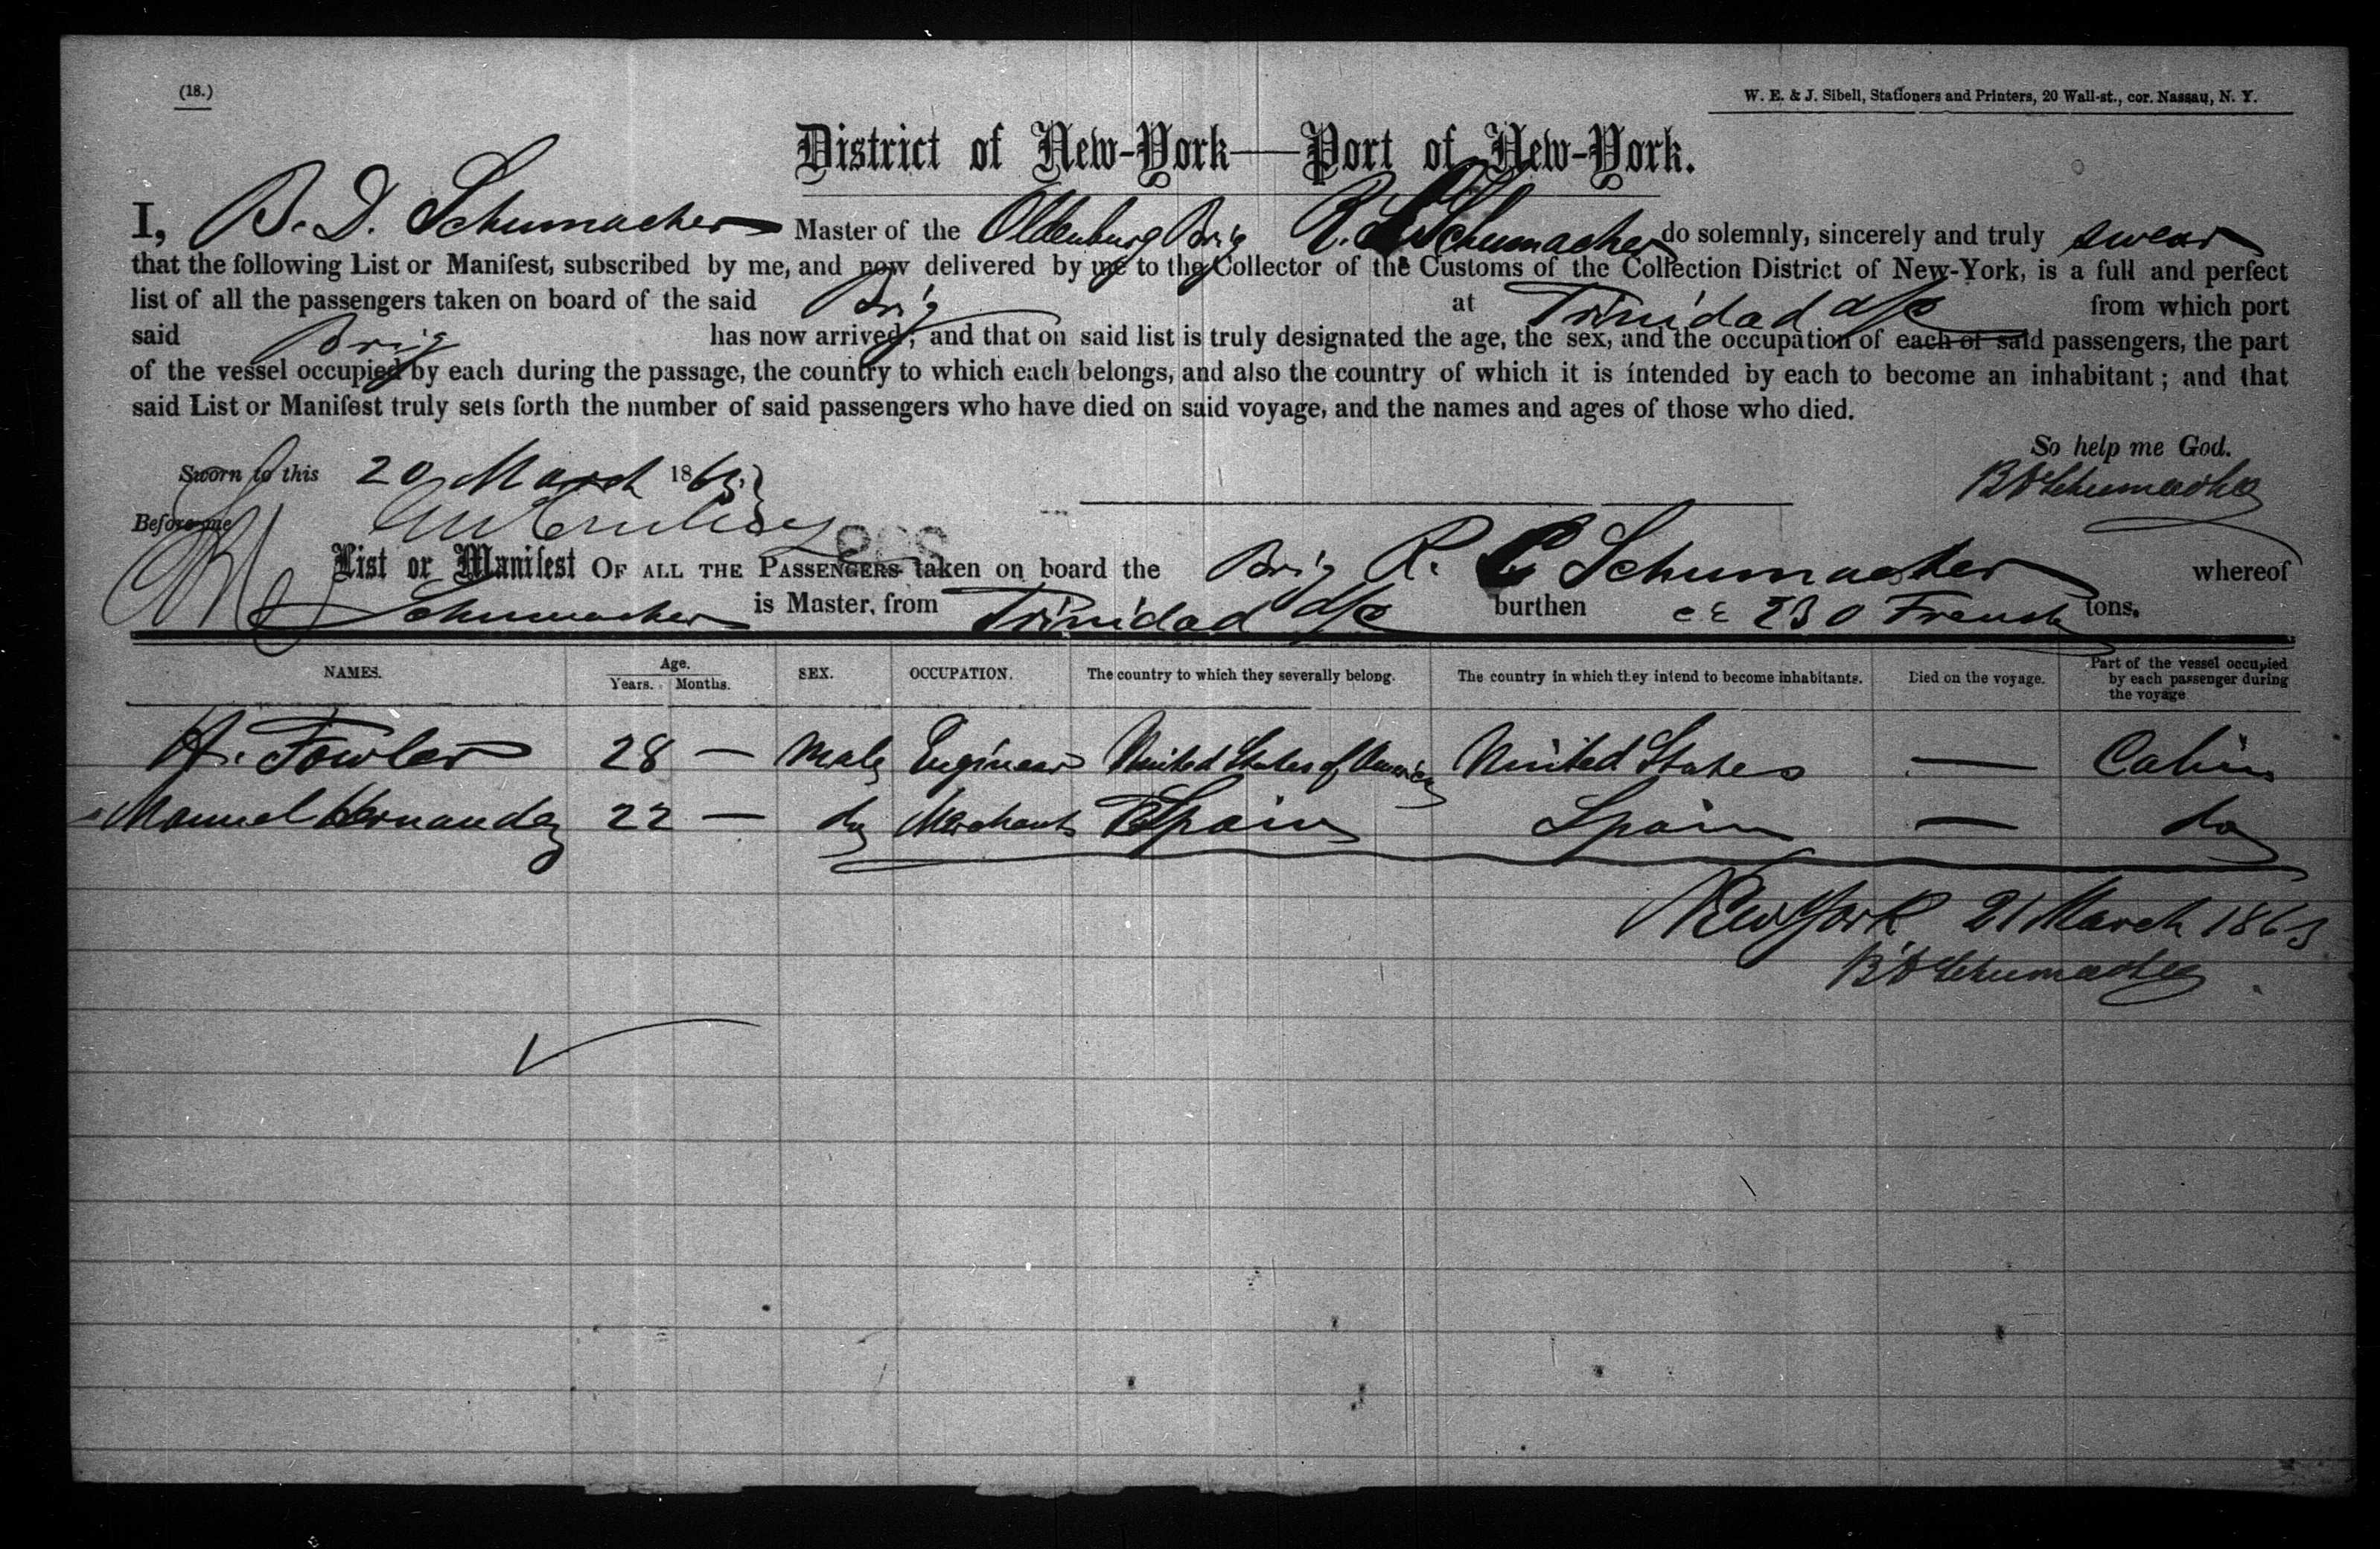 (18.)
W. E. & J. Sibell, Stationers and Printers, 20 Wall-st., cor. Nassau, N. Y.
District of New-York—Port of New-York.
I, B. D. Schumacher Master of the Oldenburg Brig R. Schumacher do solemnly, sincerely and truly swear
that the following List or Manifest, subscribed by me, and now delivered by me to the Collector of the Customs of the Collection District of New-York, is a full and perfect
list of all the passengers taken on board of the said Brig at Trinidad d/c from which port
said Brig has now arrived, and that on said list is truly designated the age, the sex, and the occupation of each of said passengers, the part
of the vessel occupied by each during the passage, the country to which each belongs, and also the country of which it is intended by each to become an inhabitant; and that
said List or Manifest truly sets forth the number of said passengers who have died on said voyage, and the names and ages of those who died.
So help me God.
Sworn to this 20 March 1863
B D Schumacher
Before me
List or Manifest OF ALL THE PASSENGERS taken on board the Brig R. C Schumacher whereof
Schumacher is Master, from Trinidad d/c burthen 230 French tons.
NAMES. Age. Years. Months. SEX. OCCUPATION. The country to which they severally belong. The country in which they intend to become inhabitants. Died on the voyage. Part of the vessel occupied by each passenger during the voyage
H. Fowler 28 — Male Engineer United States of America United States — Cabin
Manuel Hernandez 22 — do Merchant Spain Spain — do
New York 21 March 1863
B D Schumacher